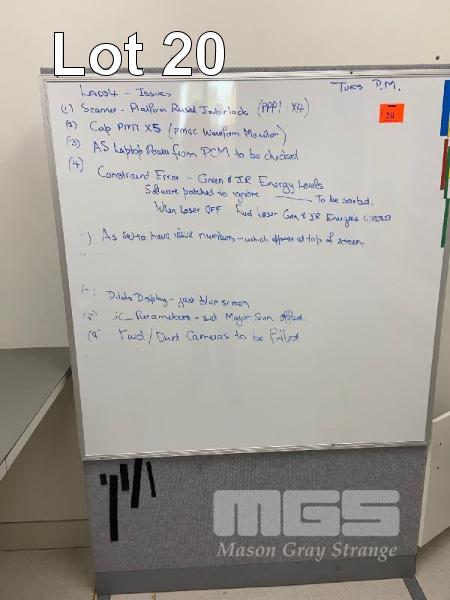 Lot 20
LADS4 - Issues
TUES P.M.
(1) Scanner - Platform Raised Interlock (PPP1 X4)
(2) Cap PMT X5 (PMGC Waveform Monitor)
(3) AS Laptop Power from PCM to be checked
(4) Constraint Error - Green & IR Energy Levels
Software patched to ignore To be sorted.
When Laser OFF Fwd Laser Grn & IR Energies
) AS SW to have issue numbers - which appear at top of screen.
Pilots Display - just blue screen
Parameters - set Major Scan offset.
Fwd / Down Cameras to be fitted
20
MGS
Mason Gray Strange